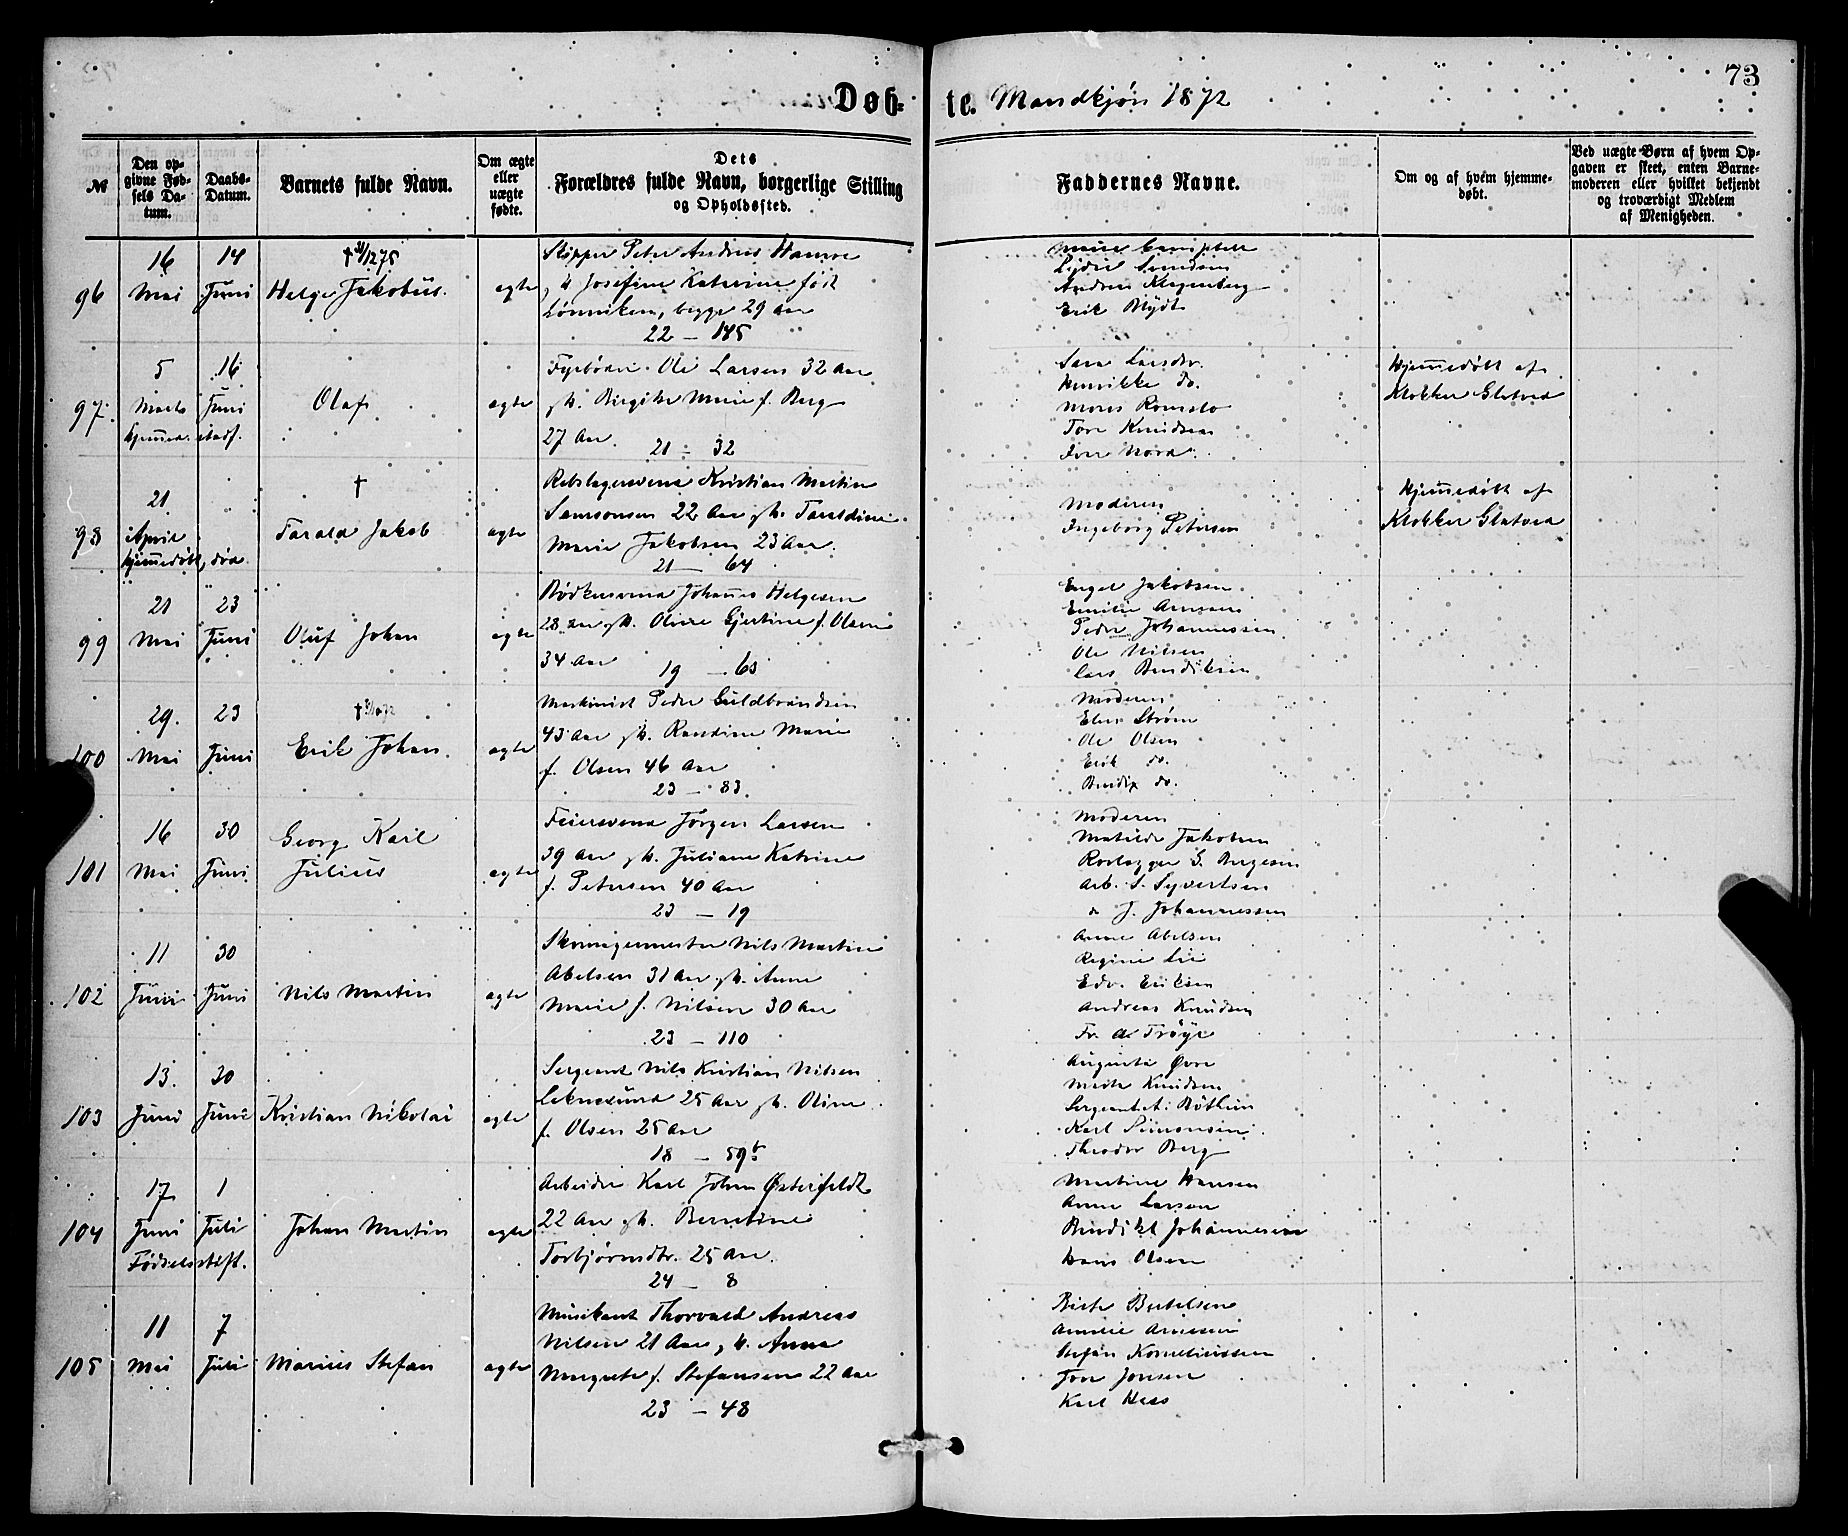 73
Døb- te. Mandkjøn 1872
№
Den opgivne Fødsels Datum.
Daabs-Datum.
Barnets fulde Navn.
Om ægte eller uægte fødte.
Dets Forældres fulde Navn, borgerlige Stilling og Opholdssted.
Faddernes Navne.
Om og af hvem hjemmedøbt.
Ved uægte Børn af hvem Opgaven er skeet, enten Barnemoderen eller hvilket bekjendt og troværdigt Medlem af Menigheden.
96
16 Mai
14 Juni
† 31/12 75
Helge Jakobus.
egte
Skipper Peter Andreas
g. m Josefine Katarine född
begge 29 Aar
22 — 145
Marie
Andreas Klagenberg
Erik Mydt
97.
5 Marts
16 Juni
hjemmed. stadf.
Olaf
egte
Fyrbøder Ole Larsen 32 Aar
g. h. Birgitte Marie f. Berg
27 Aar.
21 — 32
Sara Larsdtr.
Henrikke do.
Tore Knudsen
Hjemmedøbt af
Klokker Glatved
98
21 April
hjemmedøbt, død
†
Tarald Jakob
egte
Rebslagersvend Kristian Martin
Samsonsen 22 Aar g. h. Taraldine
Marie Jakobsen 23 Aar.
21 — 64
Moderen
Ingeborg Petersen
Hjemmedøbt af
Klokker Glatved
99
21 Mai
23 Juni
Oluf Johan
egte
Bødkersvend Johannes Helgesen
28 Aar g. h. Olvine Gjertine f. Olsen
34 Aar
19 — 63
Engel Jakobsen
Emilie Arnesen
Peder Johannessen
Ole Nilsen
Lars Bendiksen
100
29. Mai
23 Juni
Erik Johan.
egte
Maskinist Peder Guldbrandsen
43 Aar g. h. Randine Marie
f. Olsen 46 Aar
23 — 83.
Moderen
Elen Strøm
Ole Olsen
Erik do.
Bendix do.
101
16 Mai
30 Juni
Georg Karl
Julius
egte
Feiersvend Jørgen Larsen
39 Aar g. h. Juliane Katrine
f. Petersen 40 Aar
23 — 19
Moderen
Matilde Jakobsen
S. Birgesen
Arb. S. Syvertsen
" J. Johannessen
102
11 Juni
30 Juni
Nils Martin
egte
Skomagermester Nils Martin
Abelsen 31 Aar g. h. Anne
Marie f. Nilsen 30 Aar
23 — 110
Anne Abelsen
Regine Lie
Edv. Eriksen
Andreas Knudsen
Fr. A. Trøye
103
13. Juni
30 Juni
Kristian Nikolai
egte
Sergeant Nils Kristian Nilsen
25 Aar g. h. Oline
f. Olsen 25 Aar
18 — 59b
Augusta Øvre
Marte Knudsen
Karl Simonsen
Theodor Berg
104
17 Juni
1 Juli
Fødselsstift.
Johan Martin
egte
Arbeider Karl Johan Østerfeldt
22 Aar g. h. Berntine
Torbjørnsdtr. 25 Aar.
24 — 8
Martine Hansen
Anne Larsen
Bendikt Johannesen
Hans Olsen
105
11 Mai
7 Juli
Marius Stefan
egte
Musikant Thorvald Andreas
Nilsen 21 Aar g. h. Anna
Margrete f. Stefansen 22 Aar
23 — 48
Birte Bertelsen
Amalie Arnesen
Stefan Korneliussen
Tore Jonsen
Karl Hess